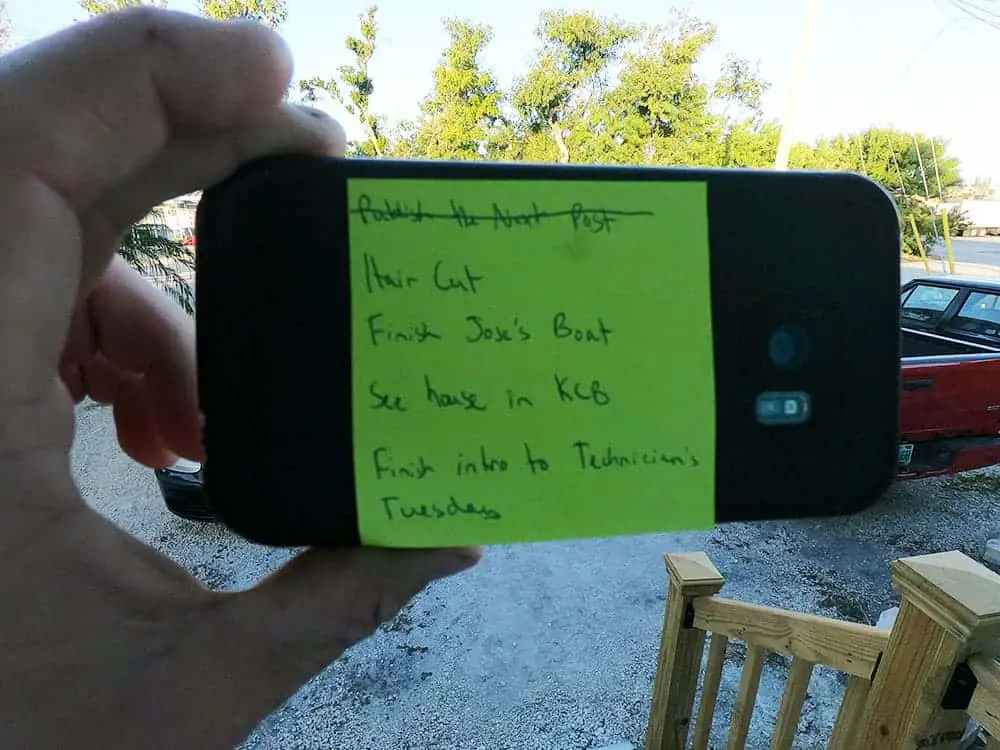 Publish the Next Post
Hair Cut
Finish Jose's Boat
See house in KCB
Finish intro to Technician's
Tuesday